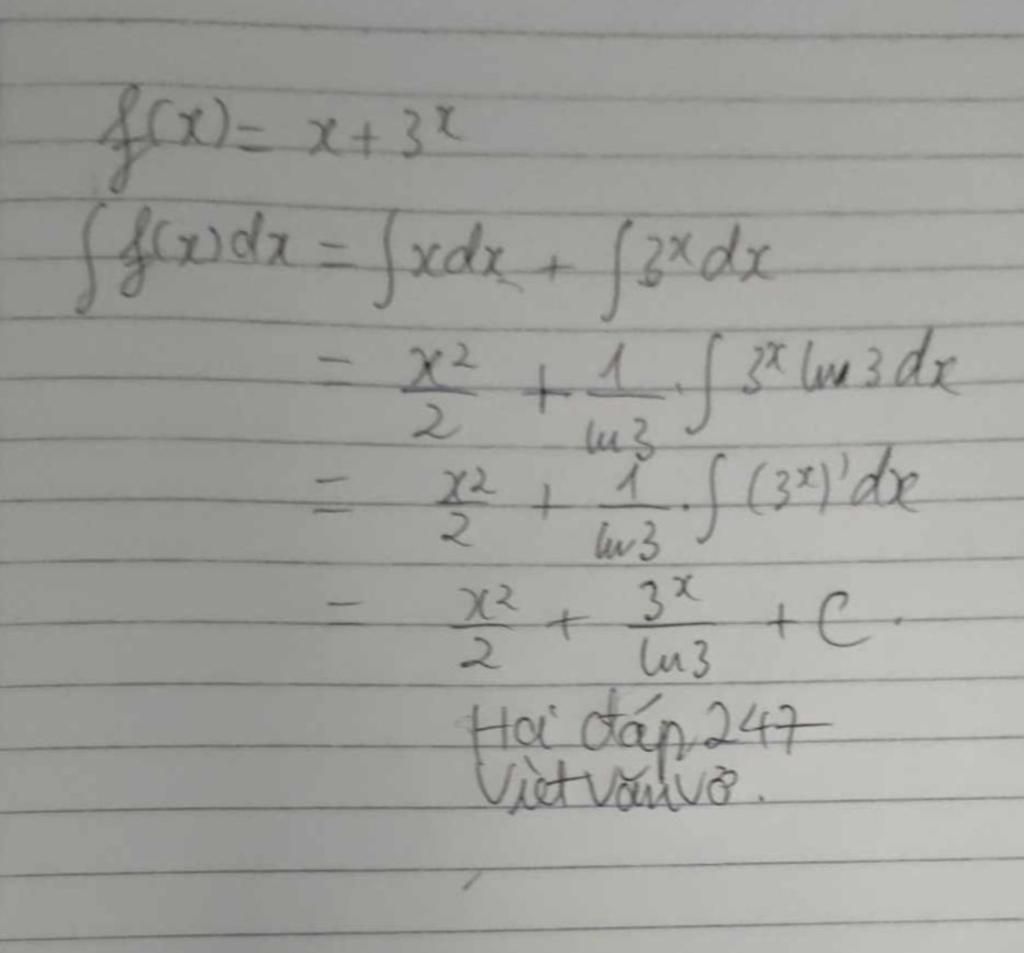 f(x) = x + 3^x
∫f(x)dx = ∫xdx + ∫3^x dx
= x²/2 + 1/ln3 . ∫3^x ln3 dx
= x²/2 + 1/ln3 . ∫(3^x)' dx
= x²/2 + 3^x/ln3 + C.
Hoi đáp 247
Việt văn vở.